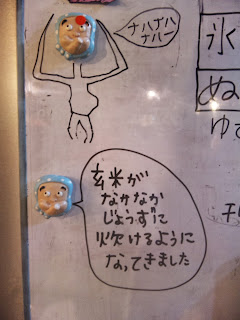 ナハナハ
ナハー
氷
ぬ
ゆ
玄米が
なかなか
じょうずに
炊けるように
なってきました